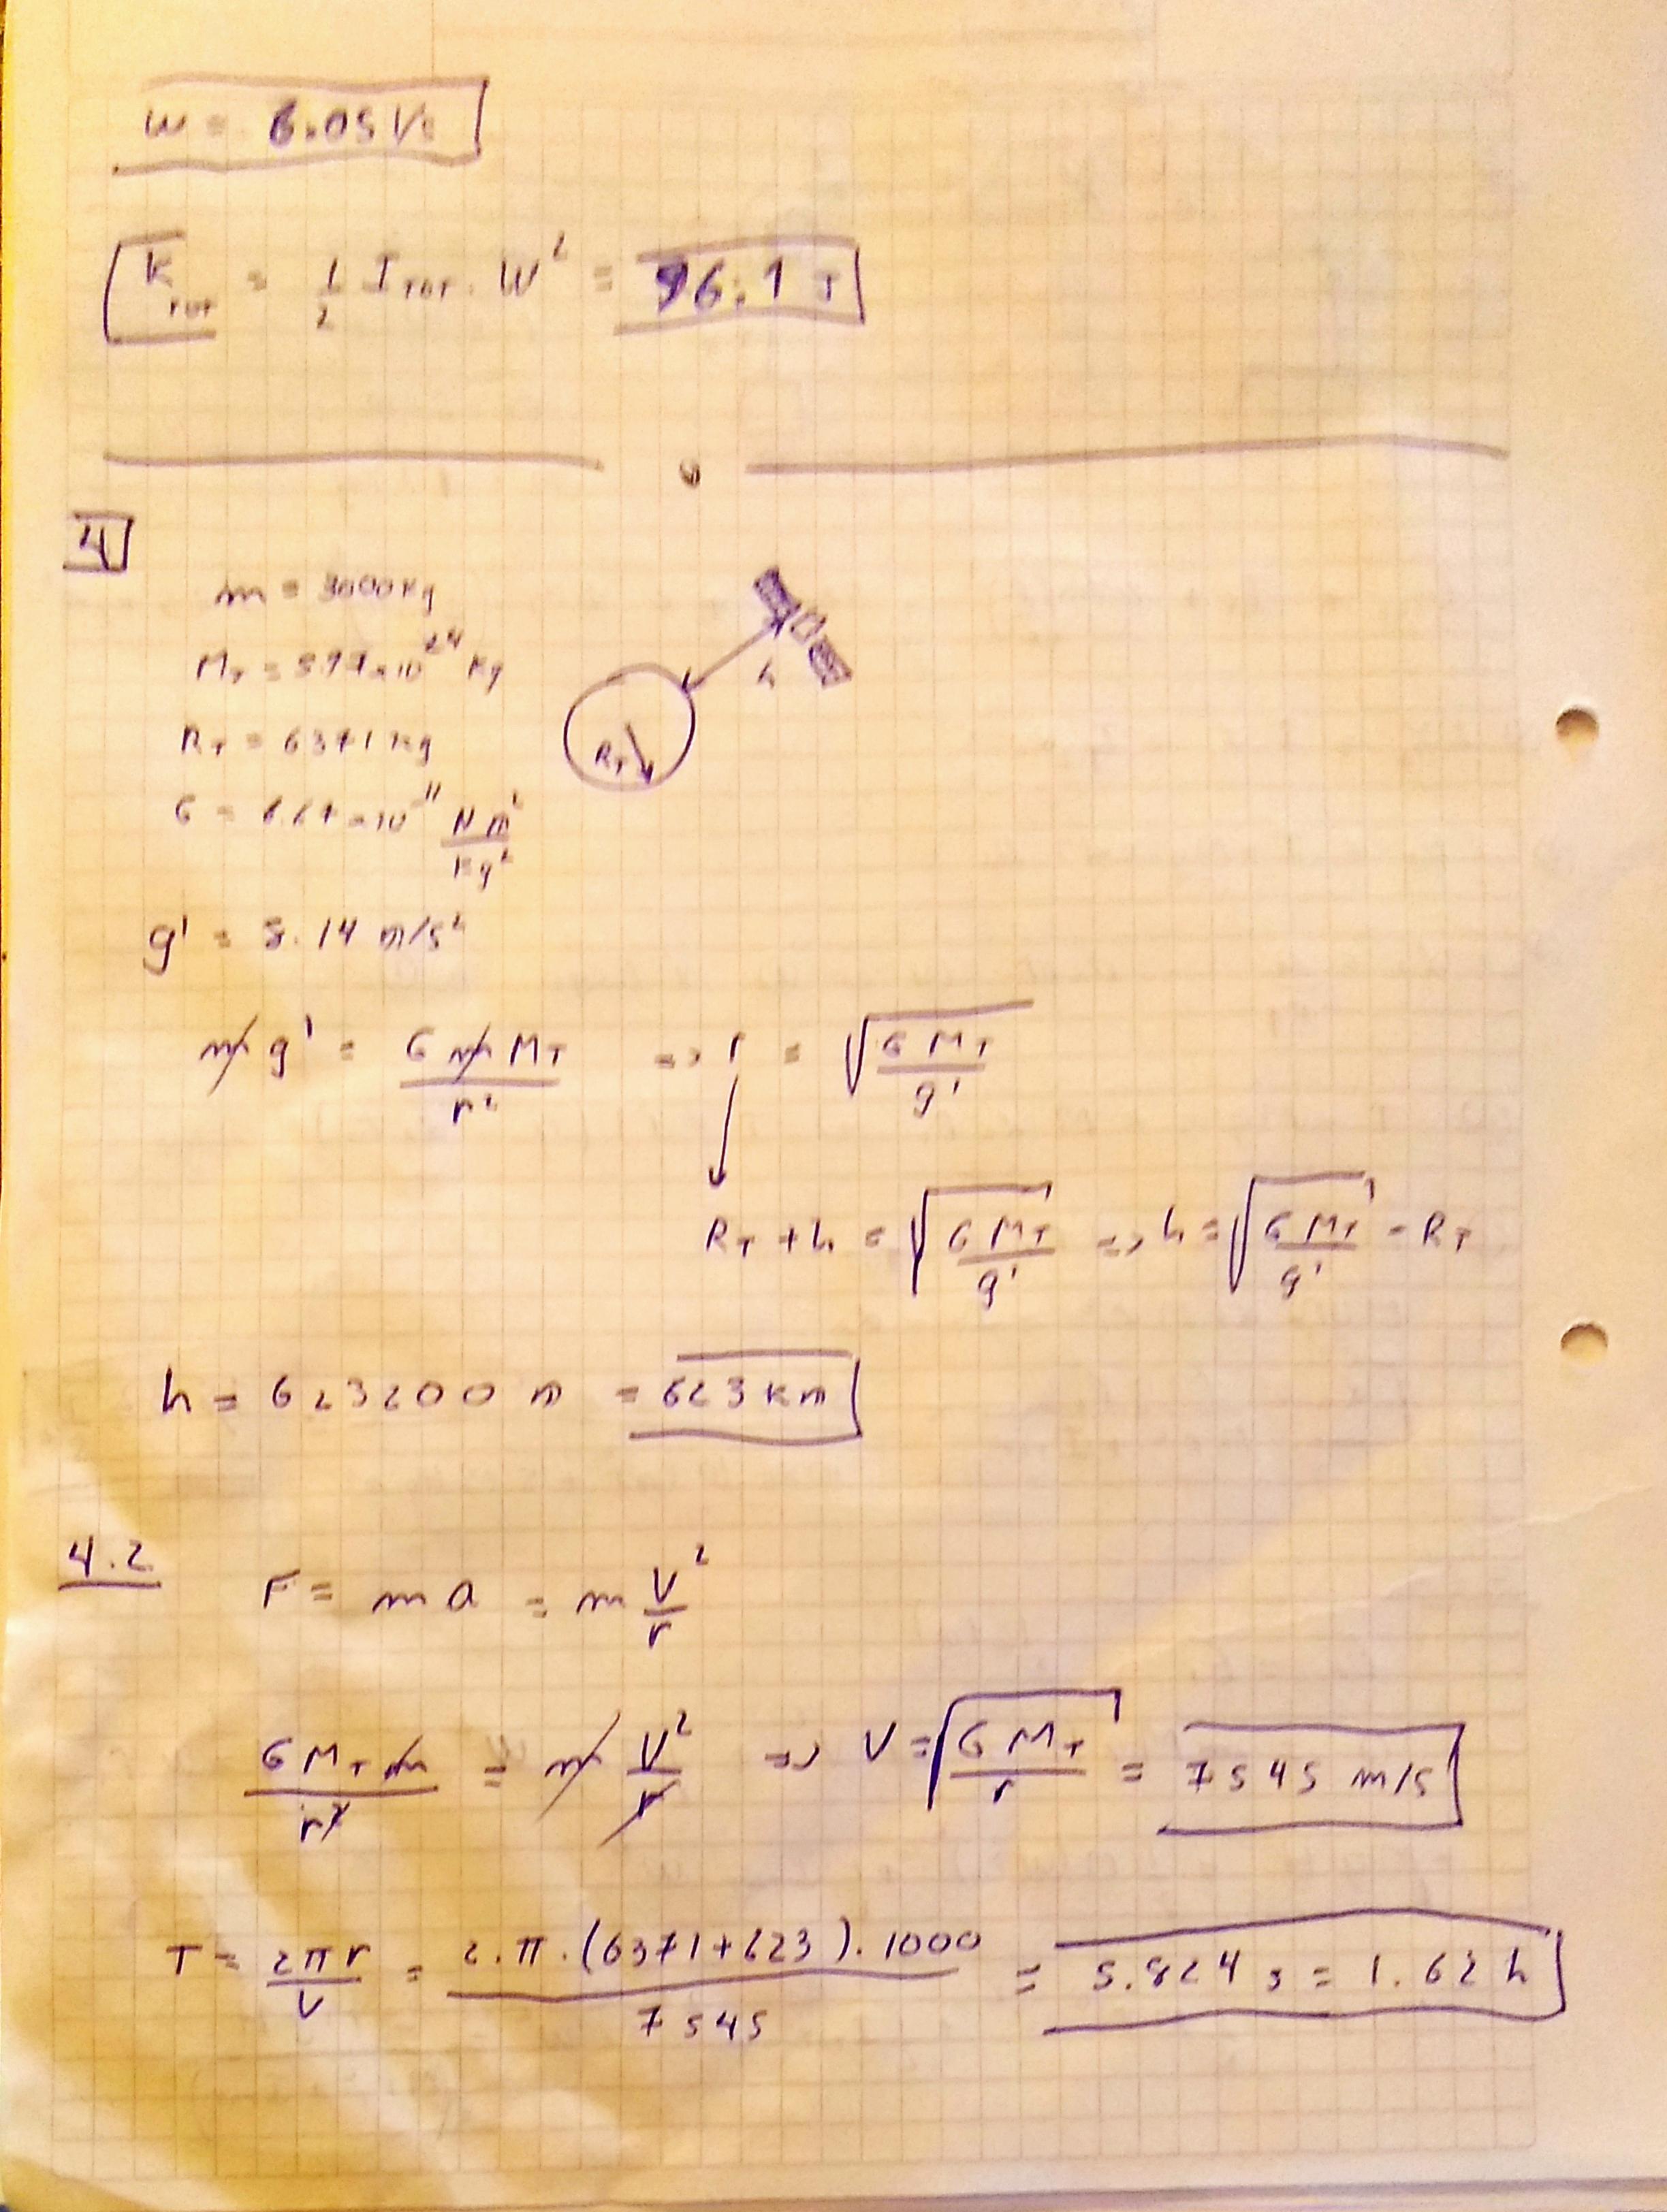 w = 6.05 V.
K_TOT = 1/2 I_TOT. W² = 96.1 J
4
m = 3000 kg
M_T = 5.97 × 10²⁴ kg
h
R_T = 6371 kg
R_T
G = 6.67 × 10⁻¹¹ N m²/kg²
g' = 8.14 m/s²
m g' = G m M_T / r² => r = √(G M_T / g')
R_T + h = √(G M_T / g') => h = √(G M_T / g') - R_T
h = 623200 m = 623 km
4.2
F = m a = m V²/r
G M_T m / r² = m V²/r => V = √(G M_T / r) = 7545 m/s
T = 2πr/V = 2.π.(6371+623).1000 / 7545 = 5.824 s = 1.62 h